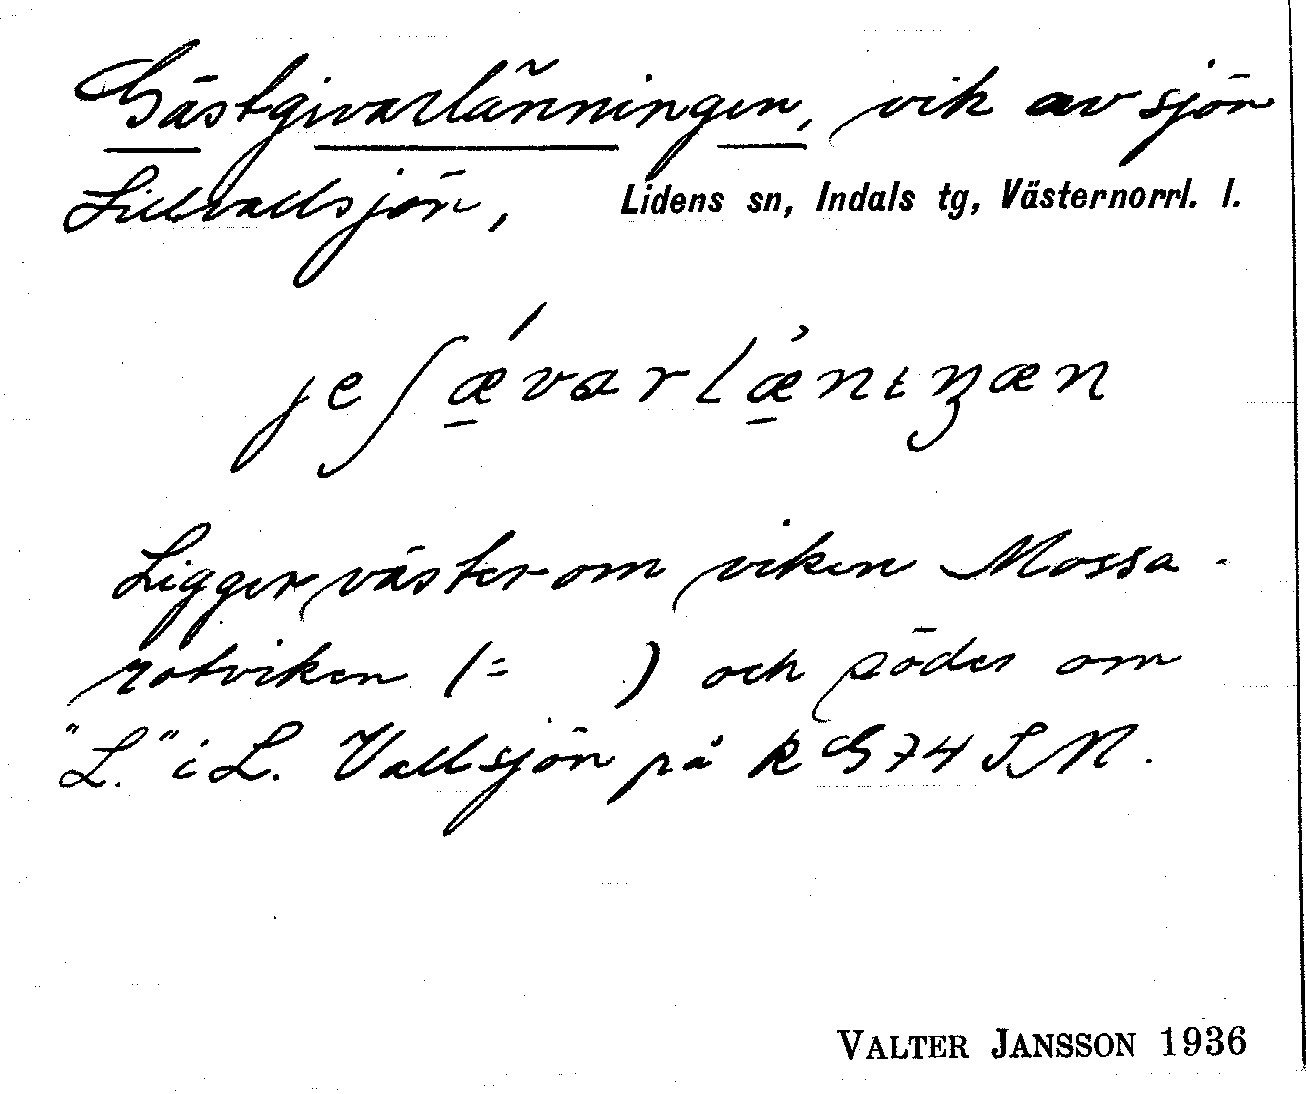 Gästgivarlänningen, vik av sjön
Lillvallsjön, Lidens sn, Indals tg, Västernorrl. l.
jeʃǽvarlæ̀nıŋæn
Ligger väster om viken Mossa-
rotviken (= ) och söder om
"L." i L. Vallsjön på k G 74 SN.
VALTER JANSSON 1936